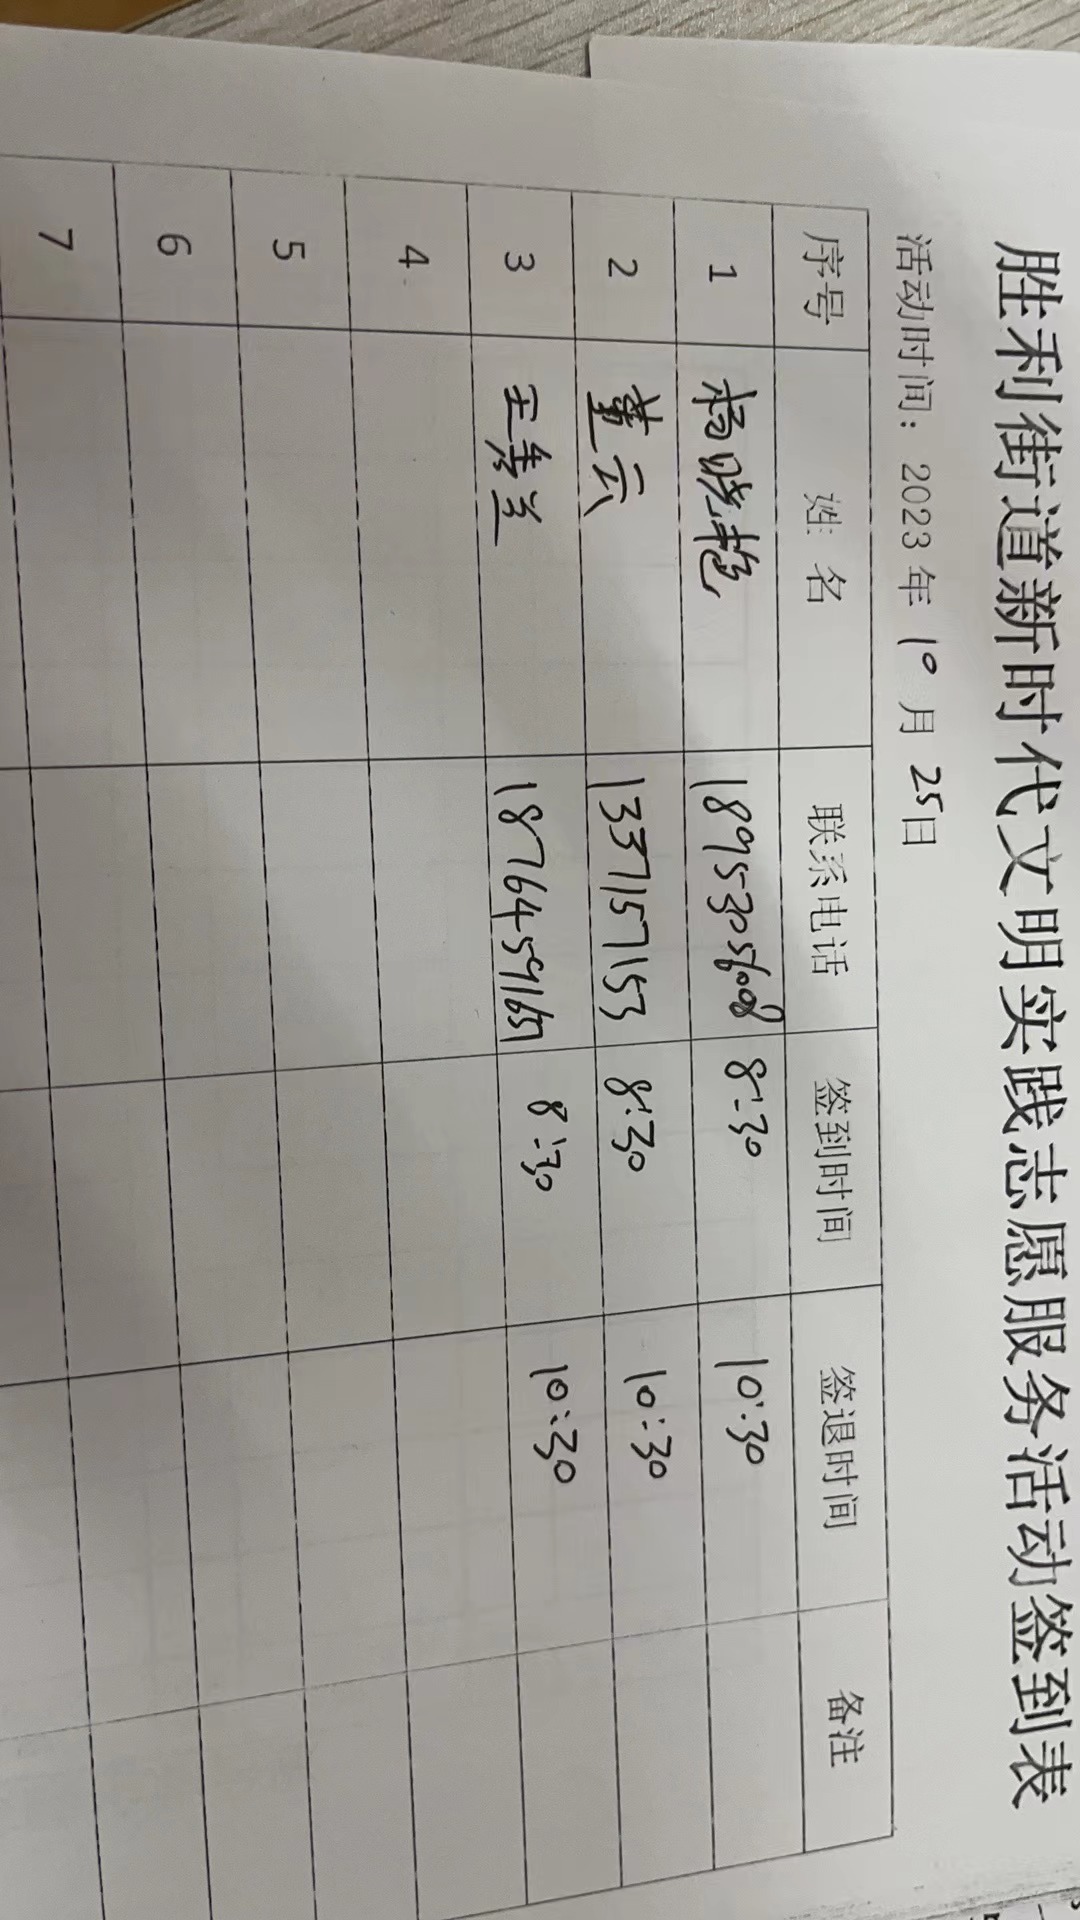 胜利街道新时代文明实践志愿服务活动签到表
活动时间：2023年10月25日
序号 姓名 联系电话 签到时间 签退时间 备注
1 杨晓艳 18953056008 8:30 10:30
2 董云 1337157153 8:30 10:30
3 王秀兰 8:30 10:30
4
5
6
7